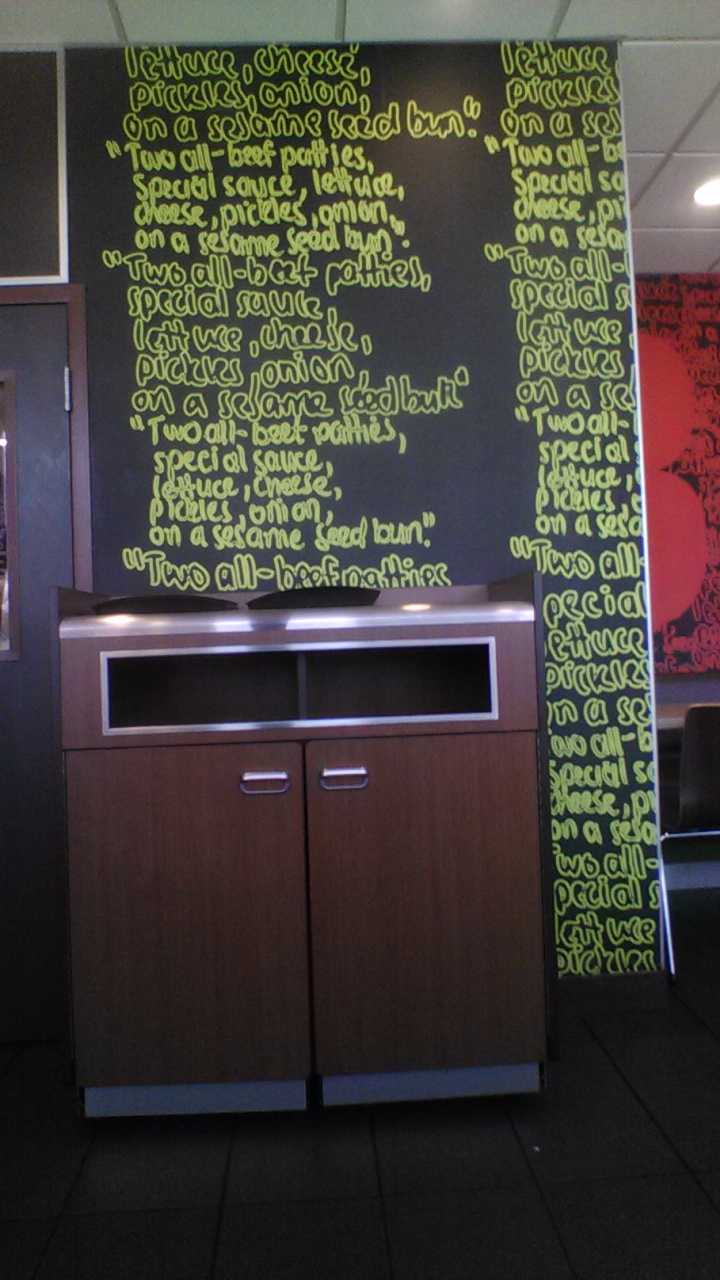 lettuce, cheese,
pickles, onion,
on a sesame seed bun."
"Two all-beef patties,
special sauce, lettuce,
cheese, pickles, onion,
on a sesame seed bun".
"Two all-beef patties,
special sauce,
lettuce, cheese,
pickles, onion
on a sesame seed bun"
"Two all-beef patties,
special sauce,
lettuce, cheese,
pickles, onion,
on a sesame seed bun."
"Two all-beef patties
lettuce
pickles
on a ses
"Two all-b
special sa
cheese, pi
on a sesam
"Two all-
special s
lettuce
pickles
on a se
"Two all-
special
lettuce,
pickles,
on a sesa
"Two all-
pecial
lettuce
pickles
on a se
two all-b
special s
cheese, pi
on a sesa
Two all-
pecial s
lettuce
pickles